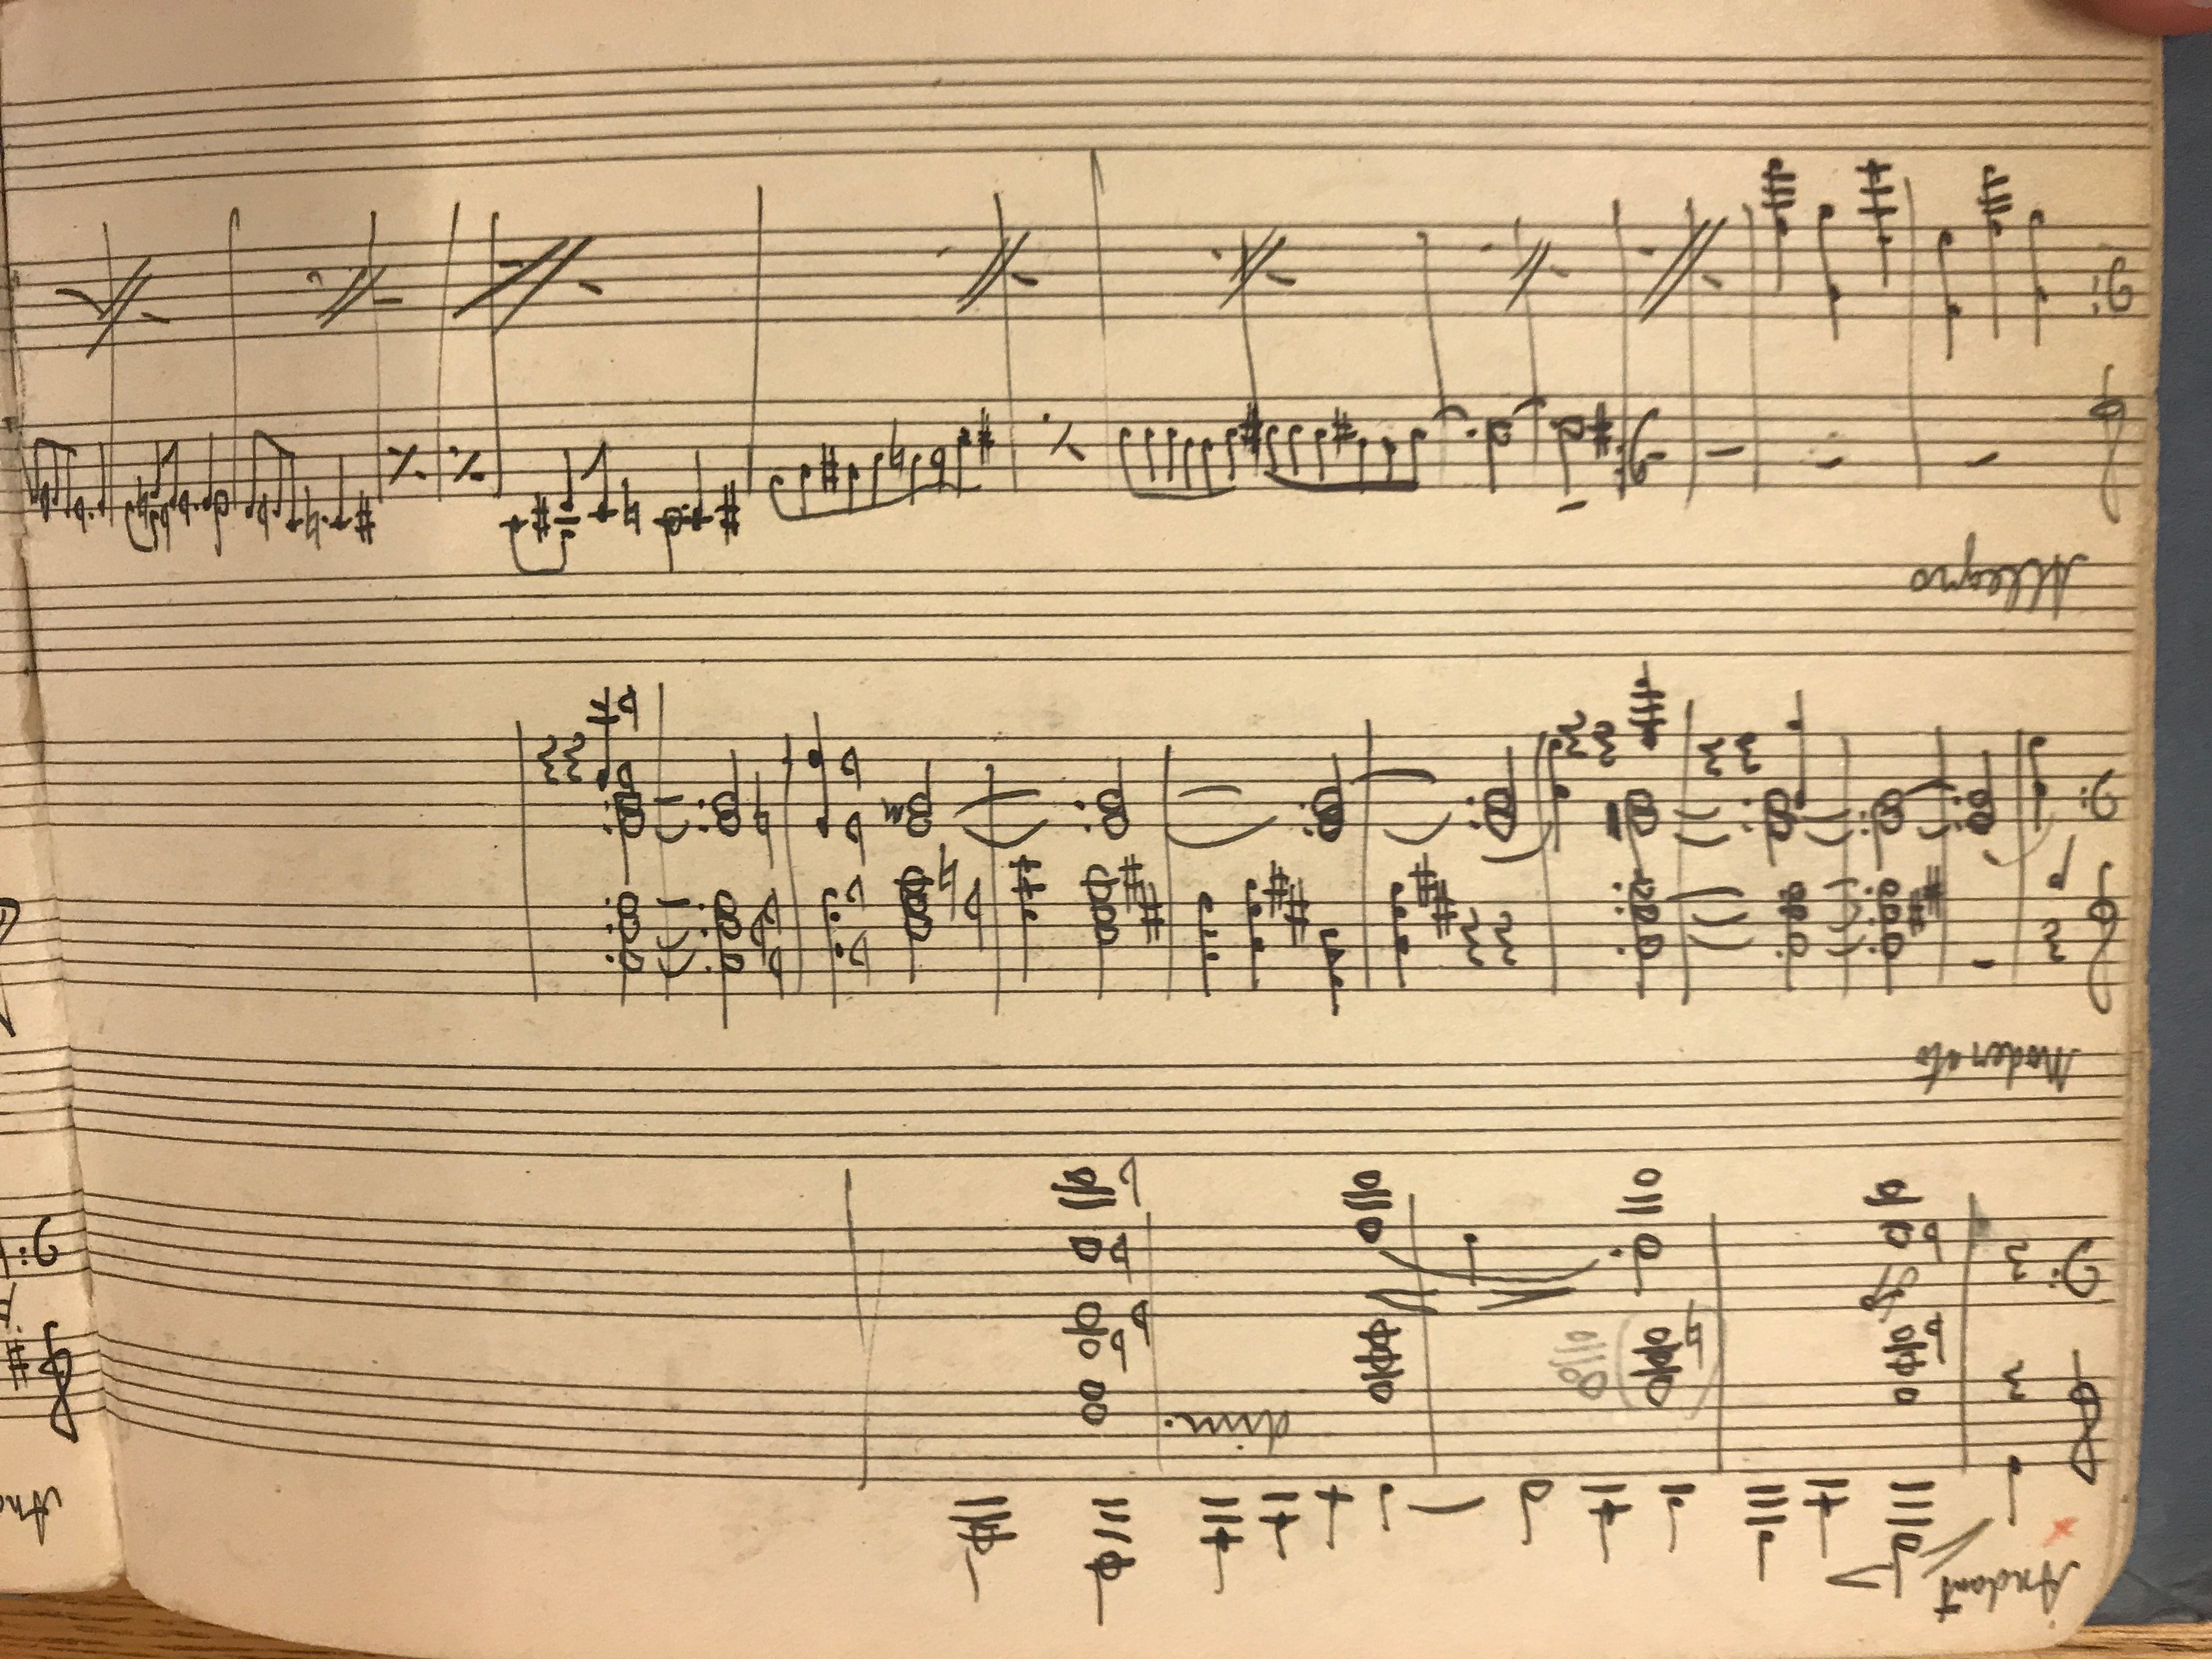 Andant
dim.
Moderato
p
Allegro